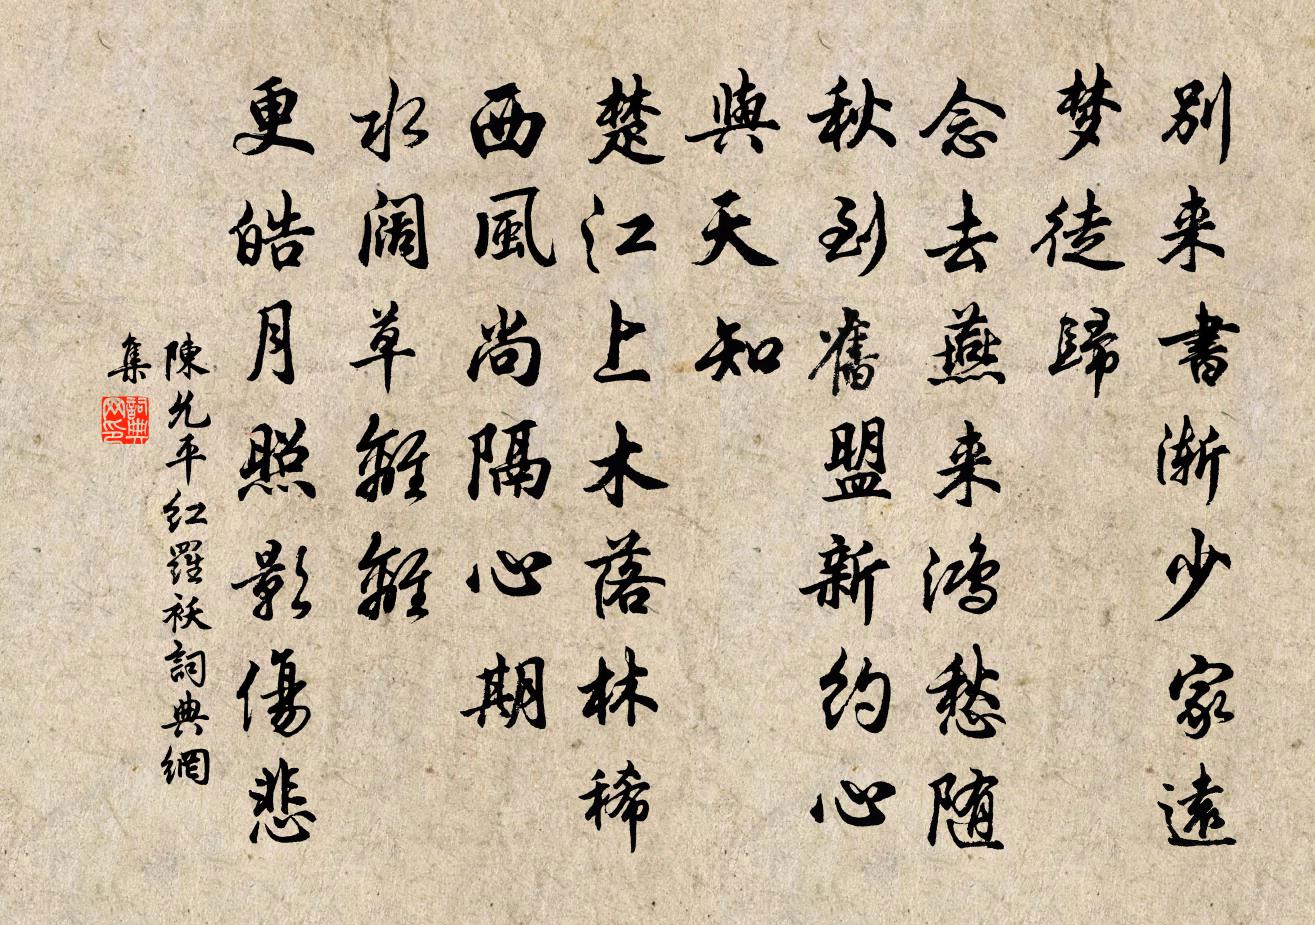 别来書渐少家遠
梦徒歸
念去燕来鸿愁随
秋到舊盟新约心
與天知
楚江上木落林稀
西風尚隔心期
水阔草離離
更皓月照影傷悲
陳允平红羅袄詞典網
集
詞典网印